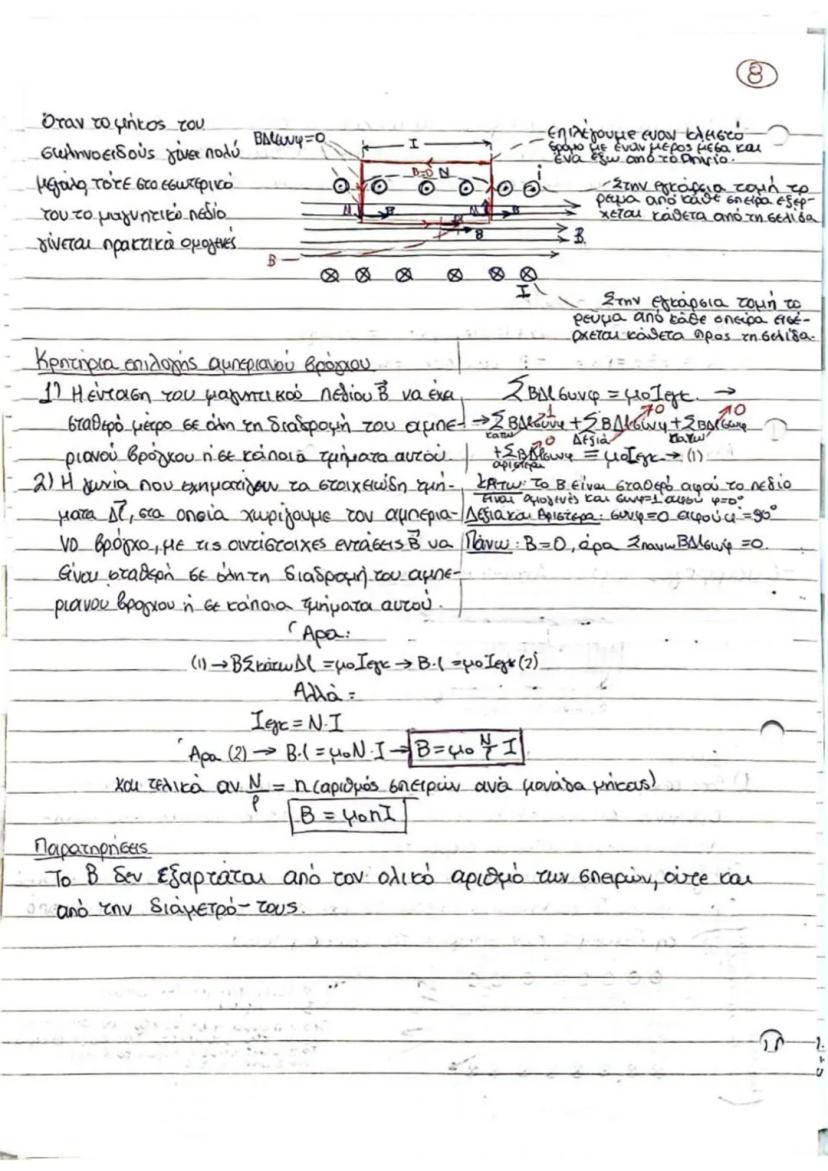 8
Όταν το μήκος του
σωληνοειδούς γίνει πολύ
μεγάλο, τότε στο εσωτερικό
του το μαγνητικό πεδίο
γίνεται πρακτικά ομογενές
ΒΔlσυνφ=0
l
B=0
N
i
επιλέγουμε έναν κλειστό
δρόμο με έναν μέρος μέσα και
ένα έξω από το πηνίο.
Στην εγκάρσια τομή το
ρεύμα από κάθε σπείρα εξέρ-
χεται κάθετα από τη σελίδα
B
B
B
B
B
I
Στην εγκάρσια τομή το
ρεύμα από κάθε σπείρα εισέ-
ρχεται κάθετα προς τη σελίδα.
Κρητήρια επιλογής αμπεριανού βρόγχου
1) Η ένταση του μαγνητικού πεδίου B να έχει
σταθερό μέτρο σε όλη τη διαδρομή του αμπε-
ριανού βρόγχου ή σε κάποια τμήματα αυτού.
2) Η γωνία που σχηματίζουν τα στοιχειώδη τμή-
ματα Δl, στα οποία χωρίζουμε τον αμπερια-
νό βρόγχο, με τις αντίστοιχες εντάσεις B να
είναι σταθερή σε όλη τη διαδρομή του αμπε-
ριανού βρόγχου ή σε κάποια τμήματα αυτού.
ΣΒΔlσυνφ = μοΙεγκ. →
→ΣΒΔlσυνφ + ΣΒΔlσυνφ + ΣΒΔlσυνφ
κάτω Δεξιά
+ΣΒΔlσυνφ = μοΙεγκ → (1)
αριστερά
Κάτω: Το B είναι σταθερό αφού το πεδίο
είναι ομογενές και συνφ=1 αφού φ=0°
Δεξιά και Αριστερά: συνφ=0 αφού φ=90°
Πάνω: B=0, άρα ΣπανωΒΔlσυνφ=0.
Άρα:
(1) → ΒΣκάτωΔl = μοΙεγκ → B·l = μοΙεγκ (2)
Αλλά:
Ιεγκ = N·I
Άρα (2) → B·l = μοN·I → B = μο N/l I
και τελικά αν N/l = n (αριθμός σπειρών ανά μονάδα μήκους)
B = μοnI
Παρατηρήσεις
Το B δεν εξαρτάται από τον ολικό αριθμό των σπειρών, ούτε και
από την διάμετρό-τους.